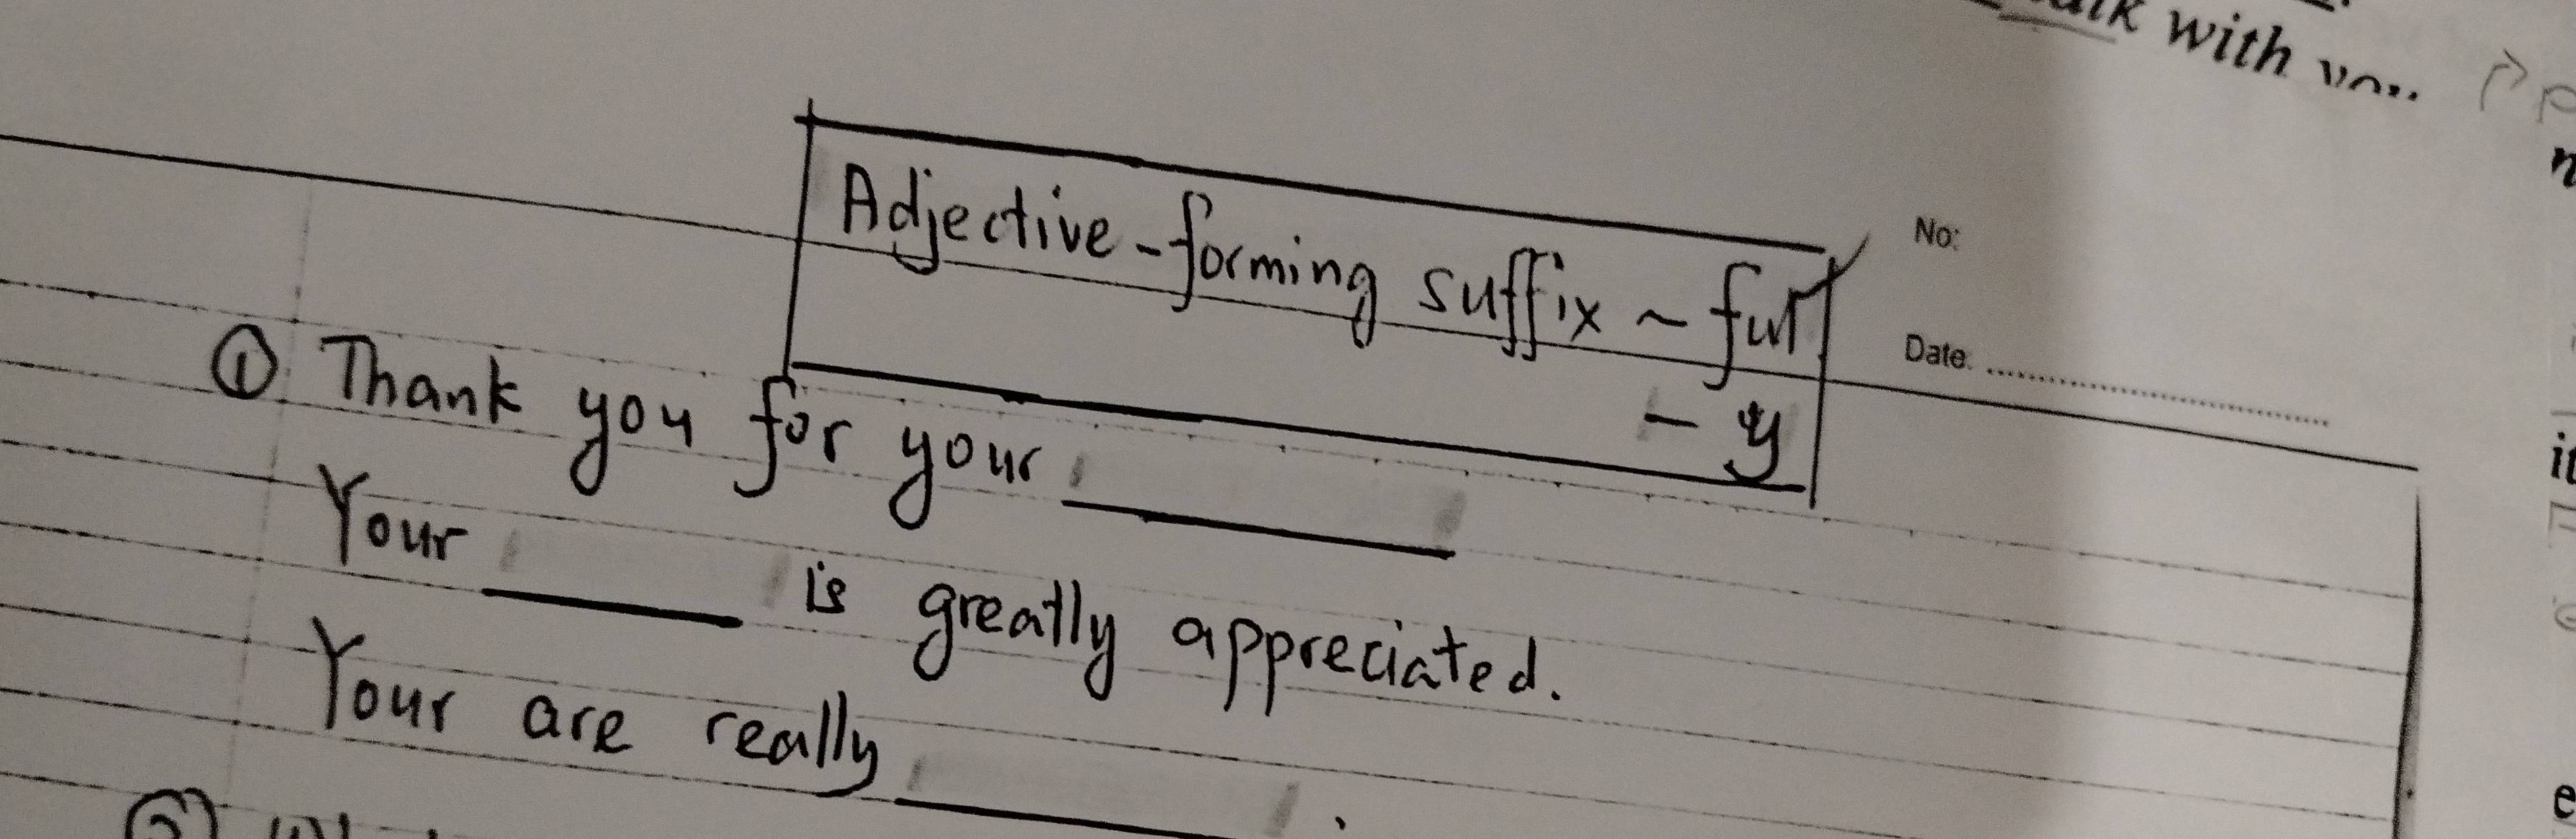 with
Adjective-forming suffix ~ ful
- y
No:
Date:
① Thank you for your
Your is greatly appreciated.
Your are really .